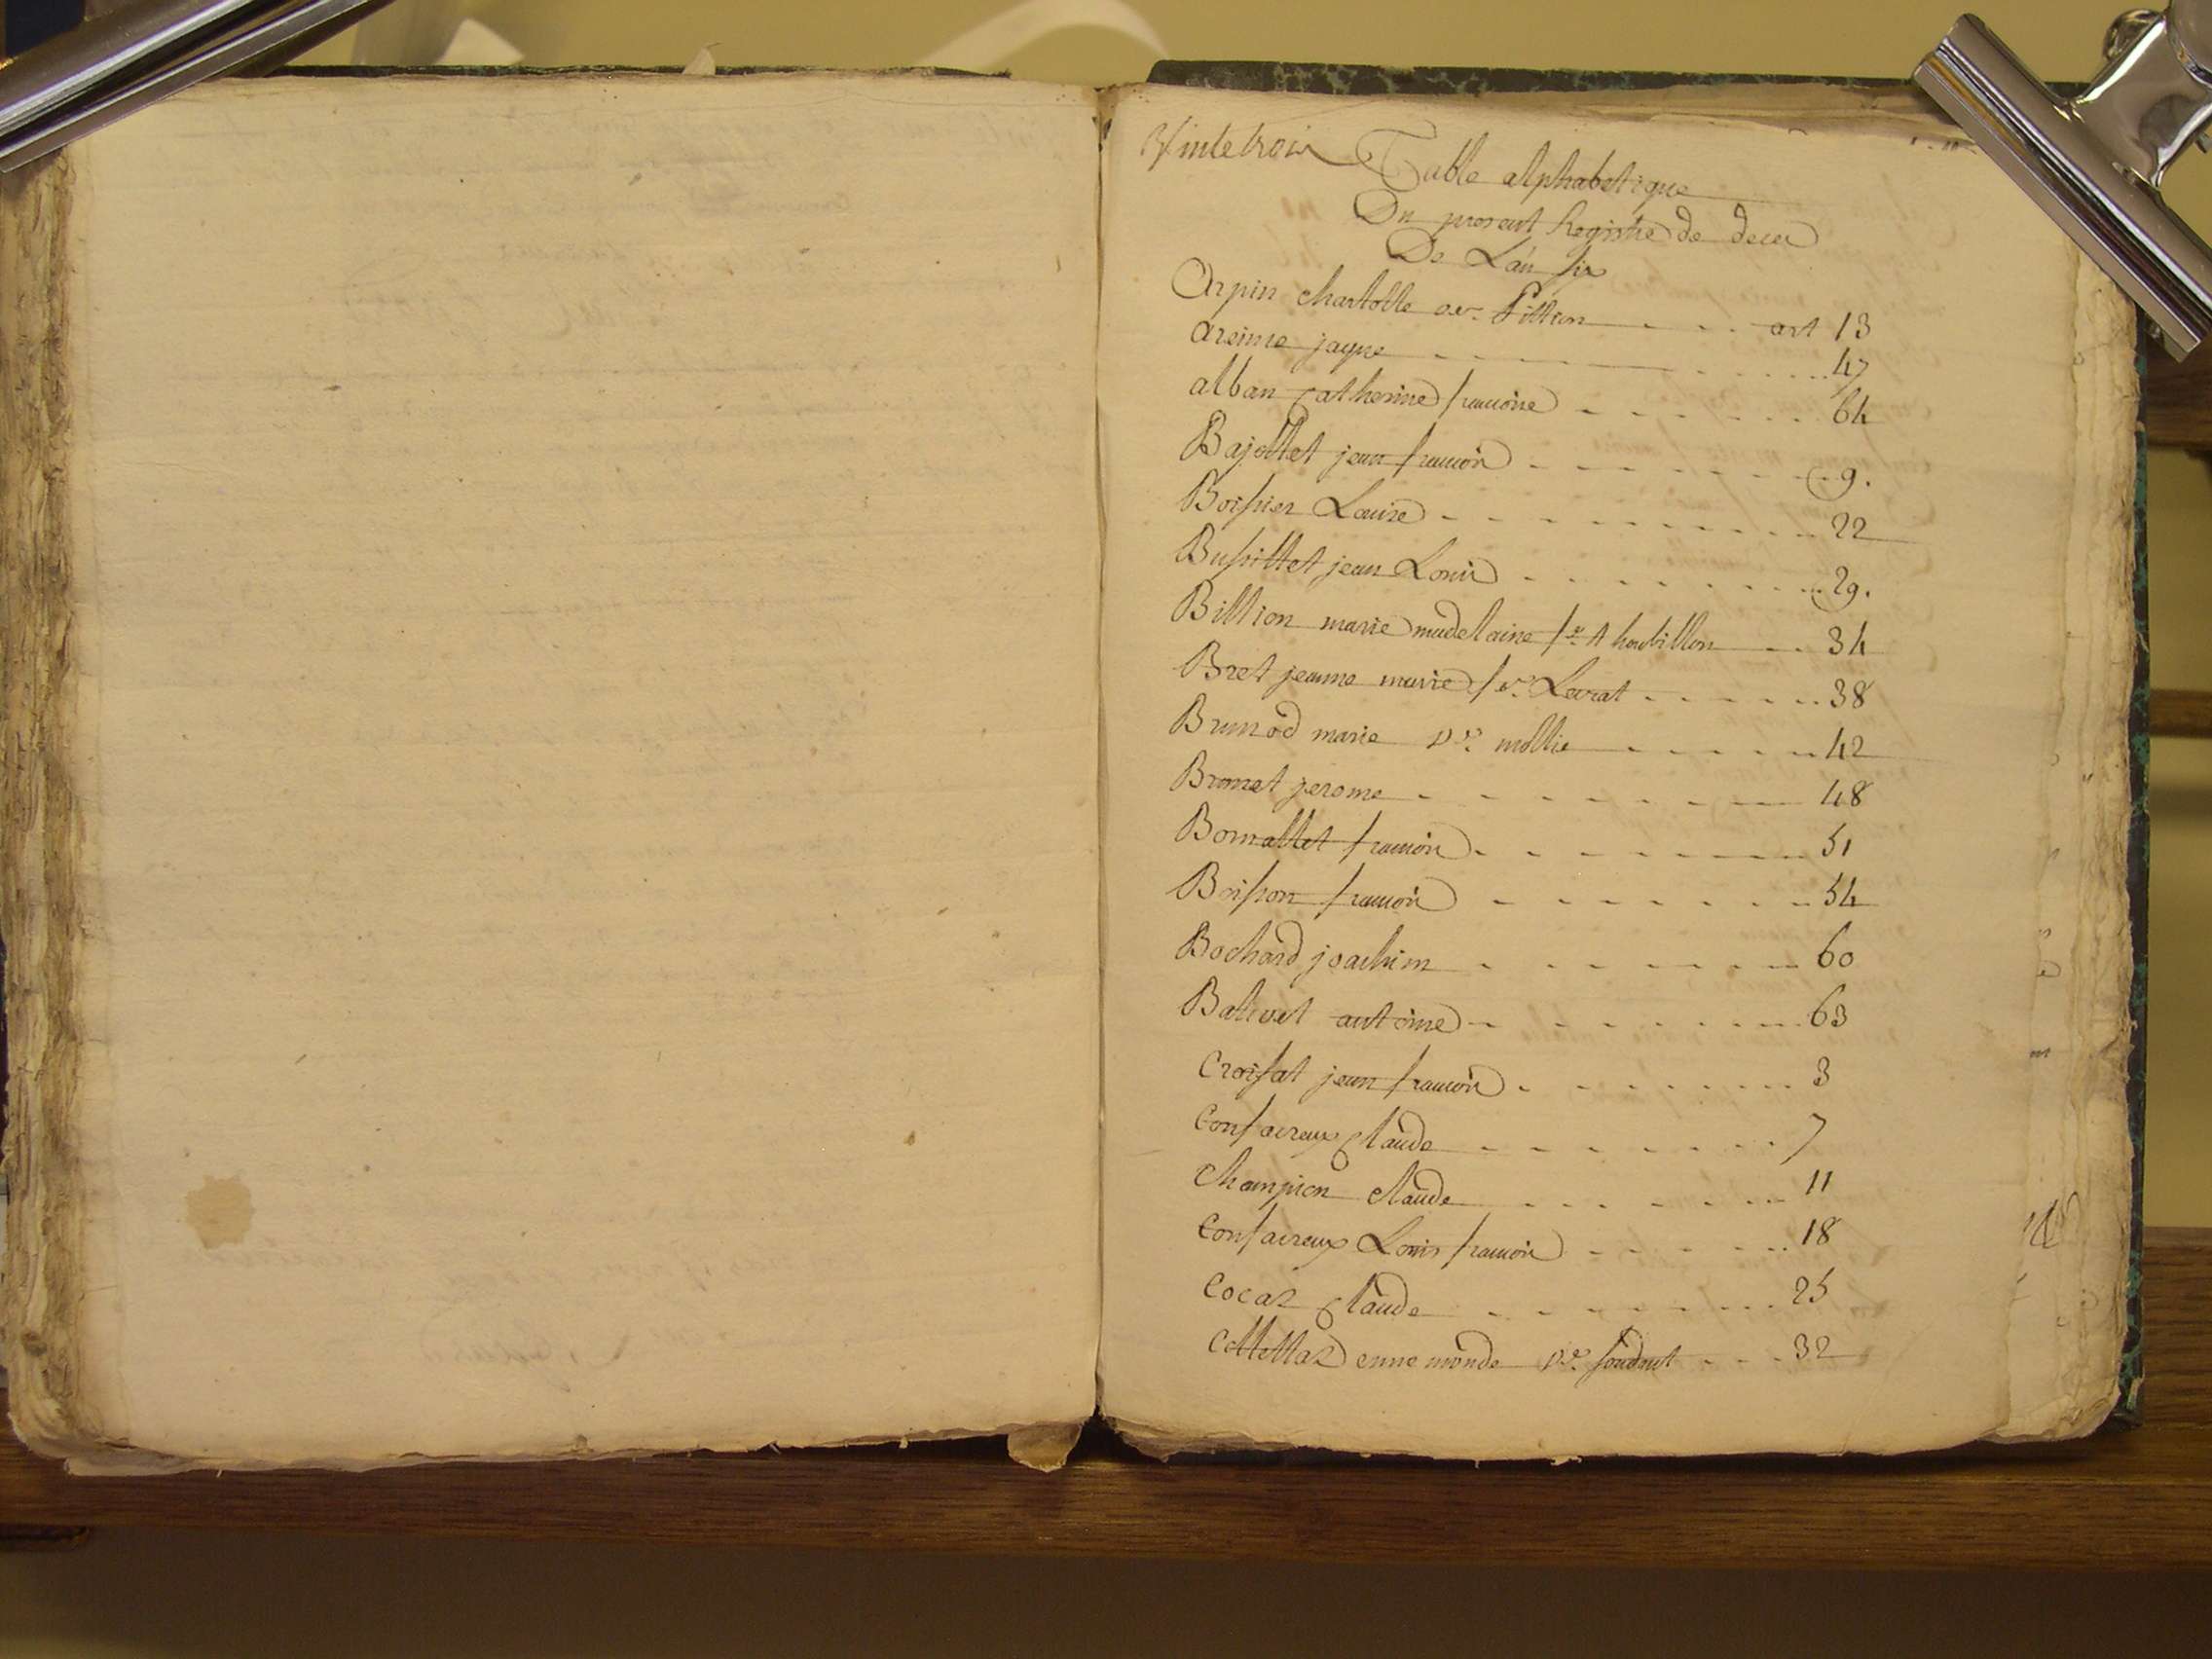 Table alphabetique
Du present Registre de deces
De L'an six
Arpin charlotte ve. Pillion art 13
Areinne jaque 47
alban Catherine francoise 64
Bajollet jean francois 9.
Boissier Louise 22
Bussillet jean Louis 29.
Billion marie madelaine fe. Thoubillon 34
Bret jeanne marie fe. Levrat 38
Brunod marie ve. mollie 42
Brunet jerome 48
Bornallet francois 51
Boisson francois 54
Bochard joachim 60
Balivet antoine 63
Croisat jean francois 3
Consaireux Claude 7
Champion claude 11
Consaireux Louis francois 18
Cocaz Claude 25
Collettaz enne monde ve. 32